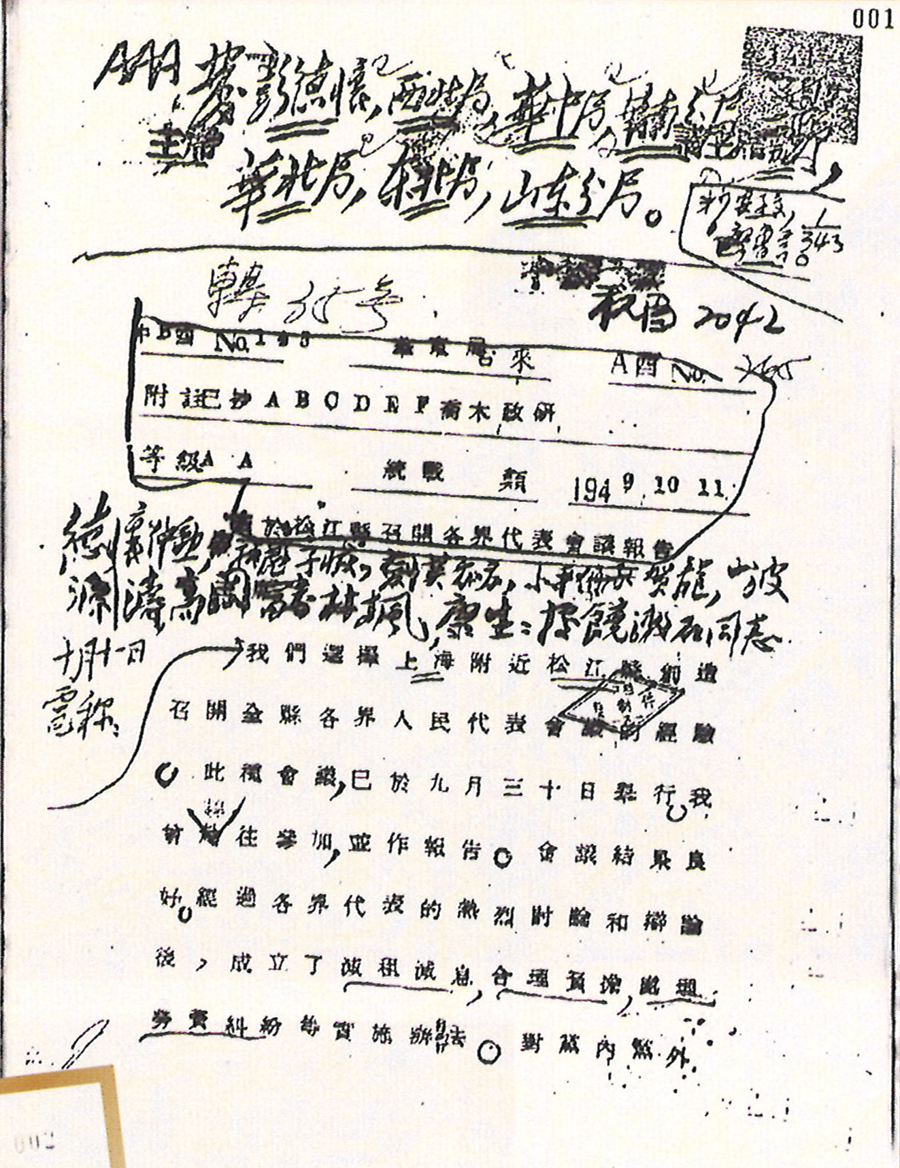 001
AAA 發彭德懷,西北局,華中局,華南分局
主席
華北局,東北局,山東分局。
轉
2042
No.193 來 A西No.
附註已抄ABCDEF喬木政研
等級AA 統戰 類 1949 10 11
於松江縣召開各界代表會議報告
德懷仲勛, 子恢, 小平 賀龍,
源濤,高崗富春林楓,康生:據饒漱石同志
十月十一日
電稱:
我們選擇上海附近松江縣創造
召開全縣各界人民代表會議的經驗
。此種會議,已於九月三十日舉行。我
曾 往參加,並作報告。會議結果良
好。經過各界代表的熱烈討論和辯論
後,成立了減租減息,合理負擔,處理
勞資糾紛等實施辦法。對黨內黨外
002